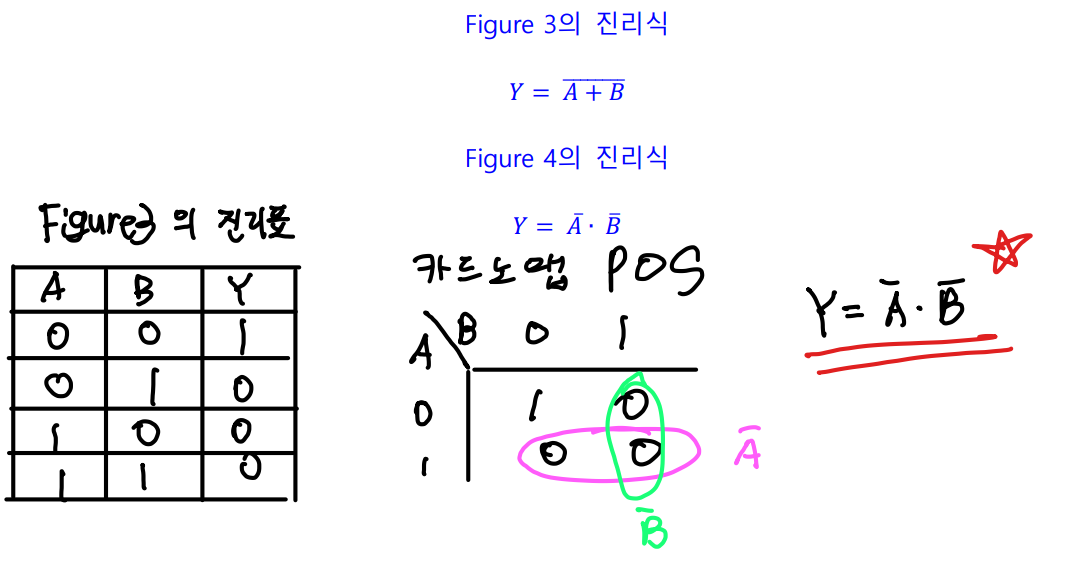 Figure 3의 진리식
Y = \overline{A + B}
Figure 4의 진리식
Y = Ā · B̄
Figure3 의 진리표
A B Y
0 0 1
0 1 0
1 0 0
1 1 0
카르노맵 POS
A \ B 0 1
0 1 0
1 0 0
Ā
B̄
Y = Ā · B̄